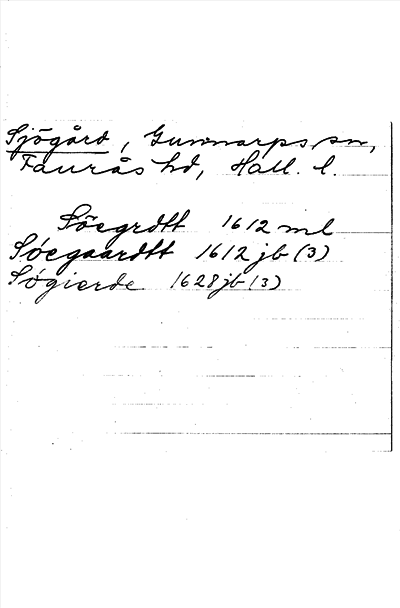 Sjögård, Gunnarps sn,
Faurås hd, Hall. l.
Söegrdtt 1612 ml
Söegaardtt 1612 jb (3)
Søgierde 1628 jb (3)